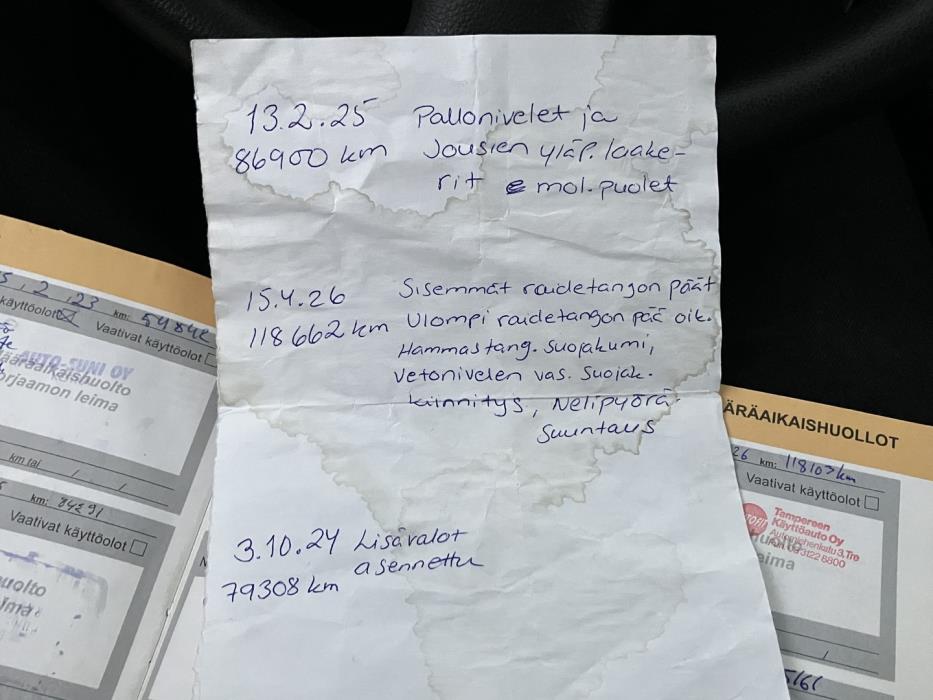 13.2.25 Pallonivelet ja
86900 km Jousien yläp. laake-
rit e mol. puolet
15.4.26 Sisemmät raidetangon päät
118662 km Ulompi raidetangon pää oik.
Hammastang. suojakumi,
vetonivelen vas. suojak.
kiinnitys, Nelipyörä-
suuntaus
3.10.24 Lisävalot
asennettu
79308 km
5.2.23 km: 54842
käyttöolot Vaativat käyttöolot
AUTO-SUNI OY
määräaikaishuolto
korjaamon leima
km tai / /
km: 84291
Vaativat käyttöolot
huolto
leima
ÄRÄAIKAISHUOLLOT
26 km: 118103 km
Vaativat käyttöolot
Tampereen
Käyttöauto Oy
huolto
leima